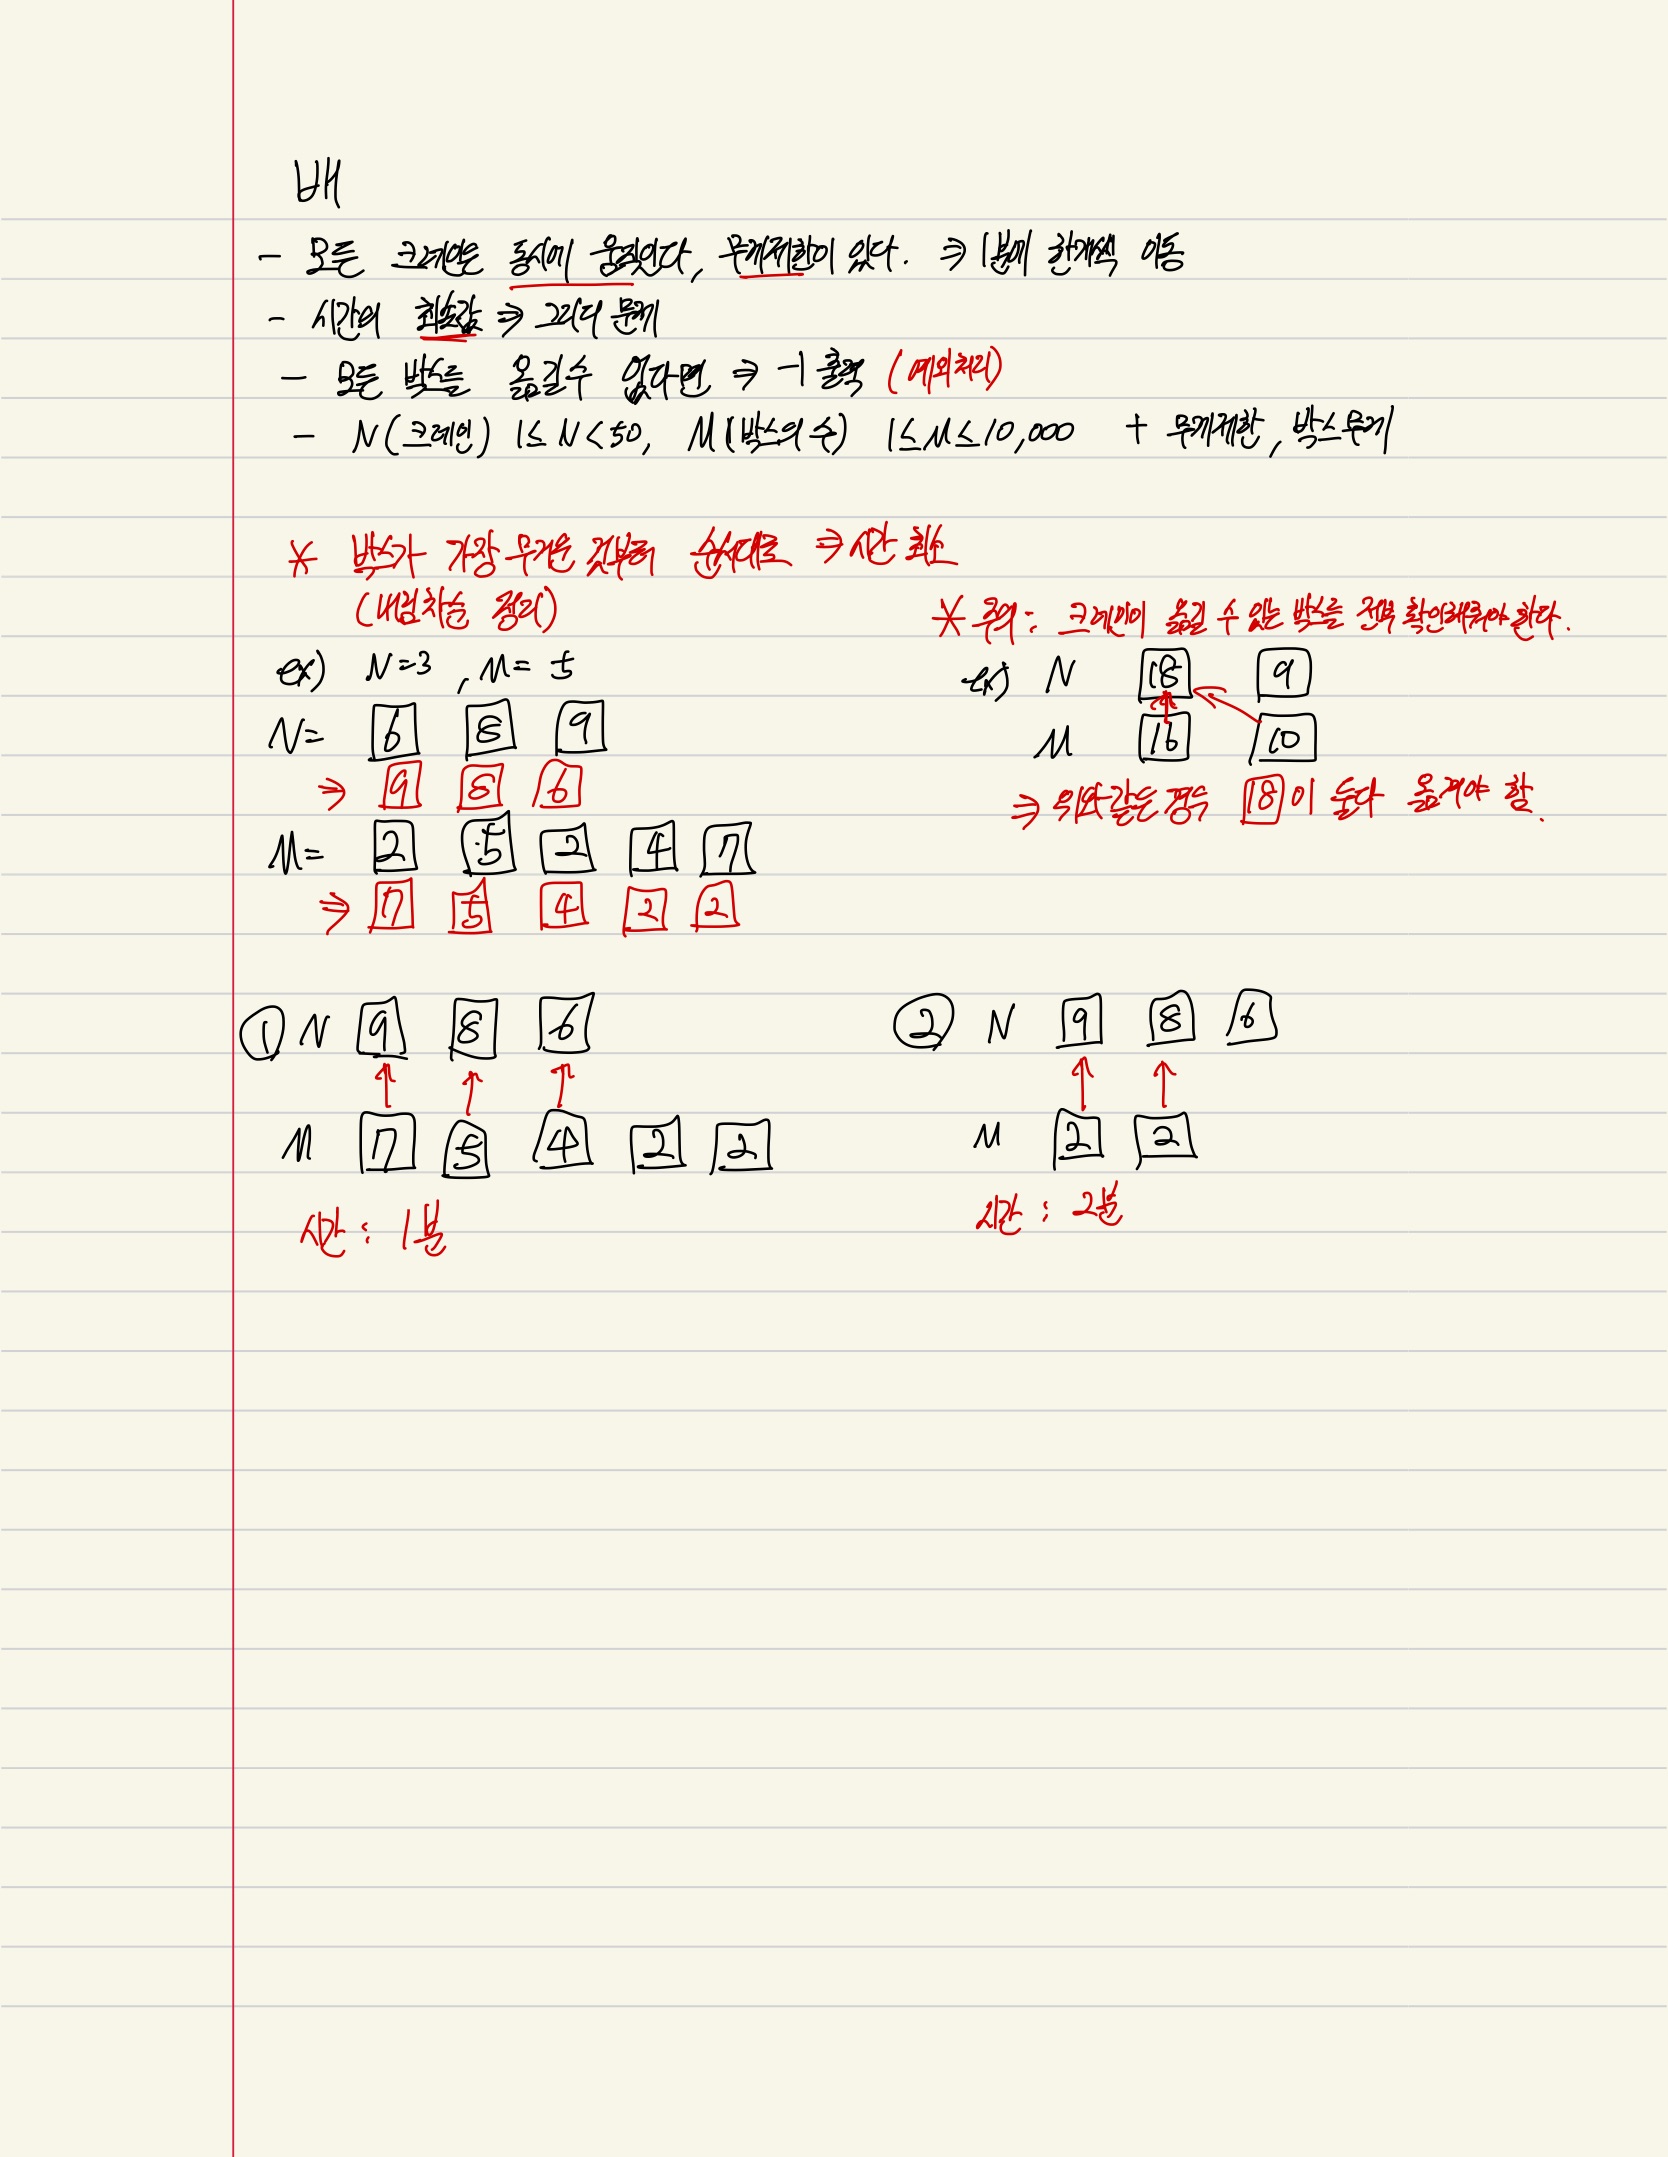 배
- 모든 크레인은 동시에 움직인다, 무게제한이 있다. ⇒ 1분에 한개씩 이동
- 시간의 최솟값 ⇒ 그리디 문제
- 모든 박스를 옮길수 없다면 ⇒ -1 출력 (예외처리)
- N(크레인) 1≤N<50, M(박스의 수) 1≤M≤10,000 + 무게제한, 박스무게
* 박스가 가장 무거운 것부터 순서대로 ⇒ 시간 최소
(내림차순 정리)
ex) N=3, M=5
N= 6 8 9
⇒ 9 8 6
M= 2 5 2 4 7
⇒ 7 5 4 2 2
* 주의: 크레인이 옮길 수 있는 박스를 전부 확인해줘야 한다.
ex) N 18 9
M 16 10
⇒ 위와 같은 경우 18이 둘다 옮겨야 함.
① N 9 8 6
M 7 5 4 2 2
시간: 1분
② N 9 8 6
M 2 2
시간: 2분